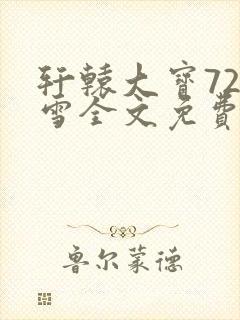 轩辕大宝72
雪全文免费
鲁尔蒙德